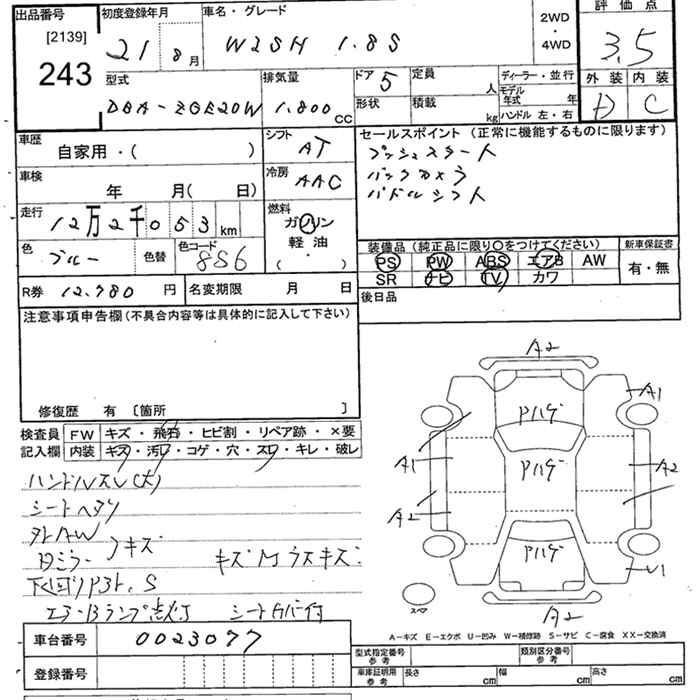 出品番号 初度登録年月 車名・グレード 2WD ・ 4WD 評価点
[2139] 243
21 8月 WISH 1.8S 3.5
型式 排気量 ドア 5 定員 人 ディーラー・並行 外装 内装
DBA-ZGE20W 1.800 CC 形状 積載 kg モデル年式 年 ハンドル 左・右 D C
車歴 自家用・( ) シフト AT セールスポイント(正常に機能するものに限ります)
プッシュスタート
バックカメラ
パドルシフト
車検 年 月( 日) 冷房 AAC
走行 12万2千053km 燃料 ガソリン 軽油 ( ・ )
色 ブルー 色替 色コード 8S6
装備品(純正品に限り○をつけてください) 新車保証書
PS PW ABS エアB AW 有・無
SR ナビ TV カワ
R券 12.780円 名変期限 月 日 後日品
注意事項申告欄(不具合内容等は具体的に記入して下さい)
修復歴 有 〔箇所 〕
検査員記入欄 FW キズ・飛石・ヒビ割・リペア跡・×要
内装 キズ・汚レ・コゲ・穴・スレ・キレ・破レ
ハンドルスレ(大)
シートヘタリ
キズ
キズ ウスキズ
エアーBランプ点灯 シートカバー付
A2
A1
Pハゲ
A1 Pハゲ A2
A2
Pハゲ
U1
スペア A2
A-キズ E-エクボ U-凹み W-補修跡 S-サビ C-腐食 XX-交換済
車台番号 0023077
登録番号
型式指定番号 参考 類別区分番号 参考
車庫証明用 参考 長さ cm 幅 cm 高さ cm